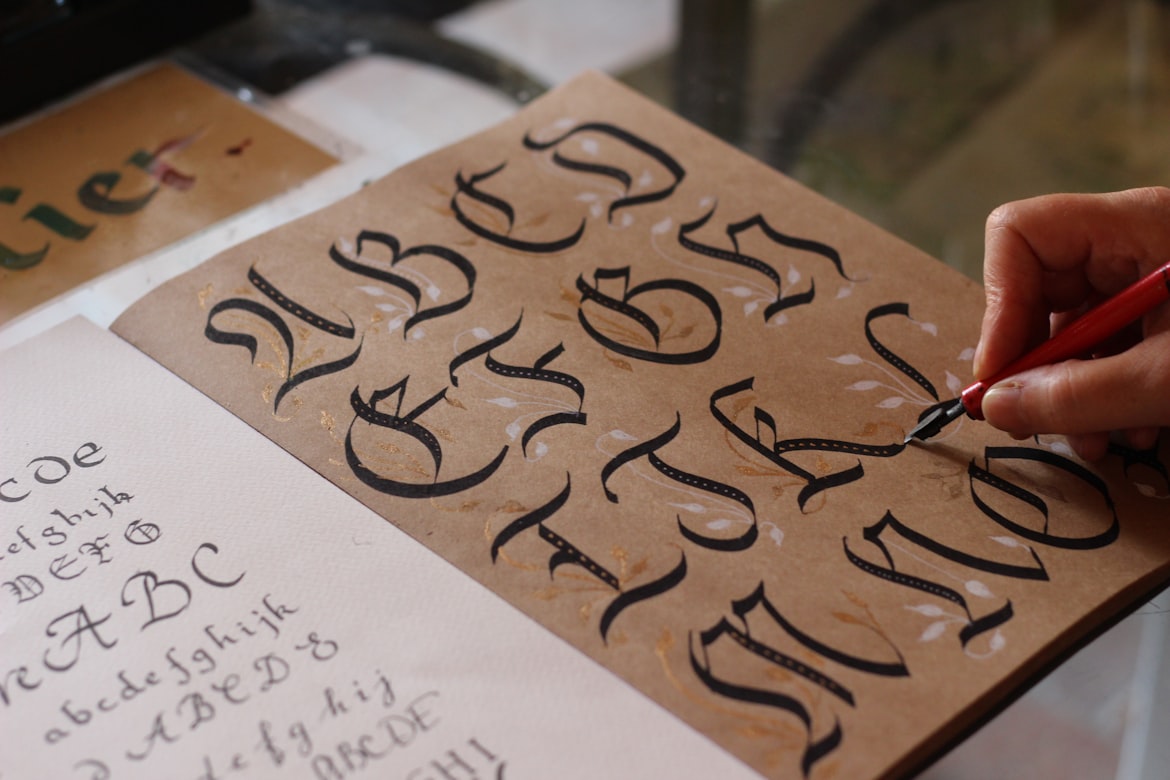 ier
A B C D
E F G H
I J K L
M N O
cde
efghijk
DEFG
re A B C
abcdefghijk
ABCDE
efghij
ABCDE
GHI